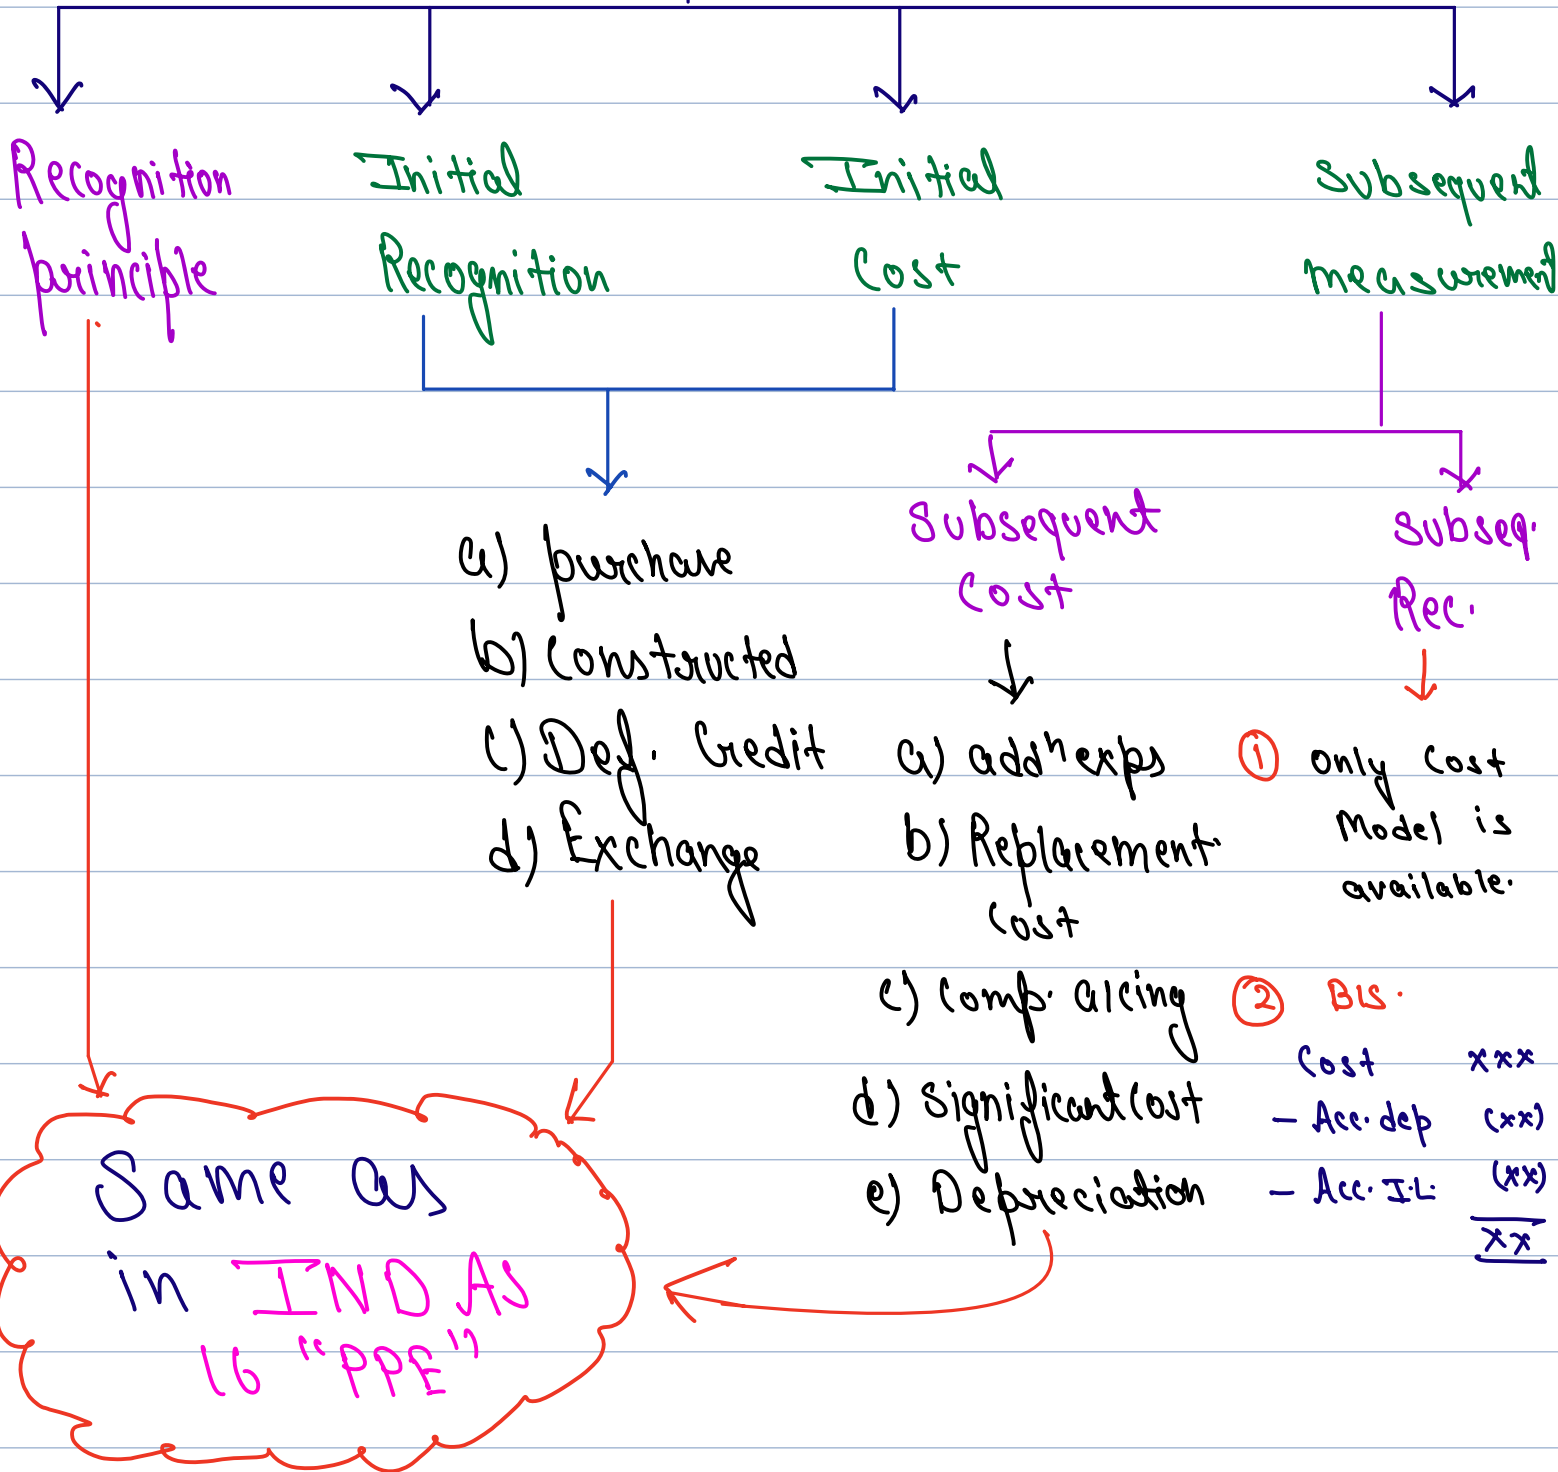 Recognition principle
Initial Recognition
Initial Cost
Subsequent measurement
a) purchase
b) Constructed
c) Def. Credit
d) Exchange
Subsequent
Cost
a) addⁿ exps
b) Replacement
Cost
c) Comp. a/cing
d) Significant Cost
e) Depreciation
Subseq.
Rec.
① only Cost
Model is
available.
② B/S.
Cost xxx
- Acc. dep (xx)
- Acc. I.L. (xx)
xx
Same as
in IND AS
16 "PPE"